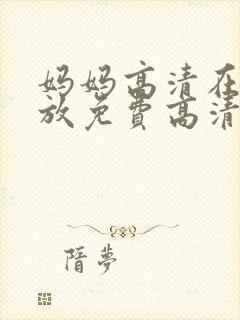 妈妈高清在
放免费高清
隋夢